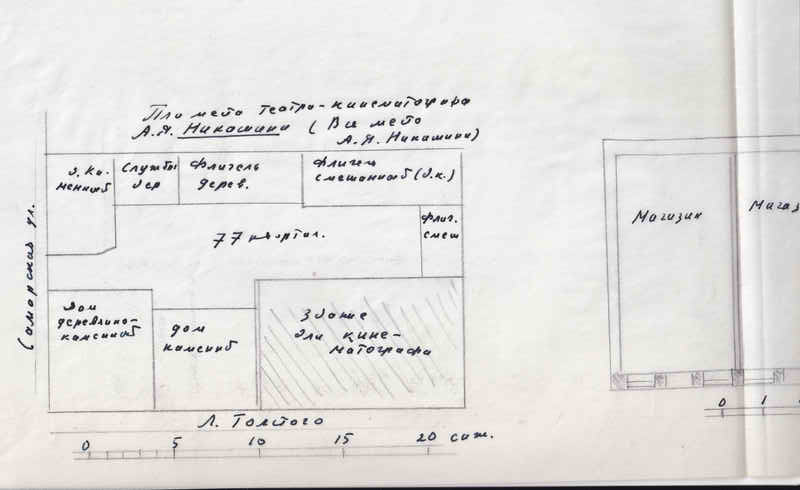 План места театра-кинематографа
А.Я. Никашина (Все место
А.Я. Никашина)
д. ка-
менный
Службы
дер
Флигель
дерев.
Флигель
смешанный (д.к.)
Флиг.
смеш
77 квартал.
Самарская ул.
Дом
деревянно-
каменный
дом
каменный
Здание
для кине-
матографа
Магазин
Магаз
Л. Толстого
0 5 10 15 20 саж.
0 1